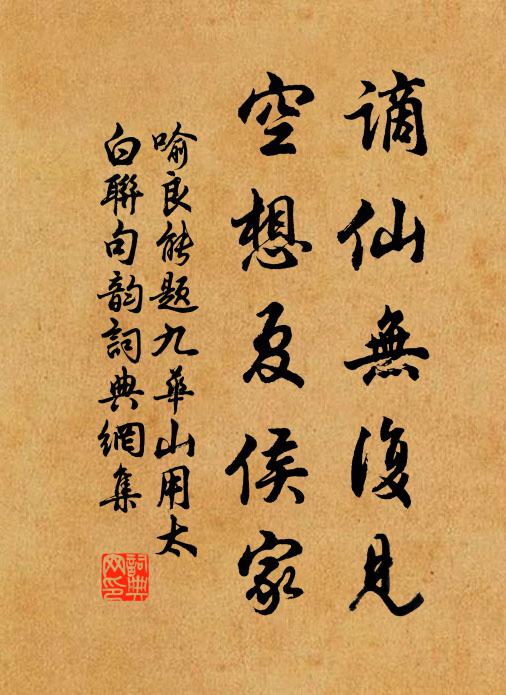 謫仙無復見
空想夏侯家
喻良能題九華山用太
白聯句韵詞典網集
詞典网印